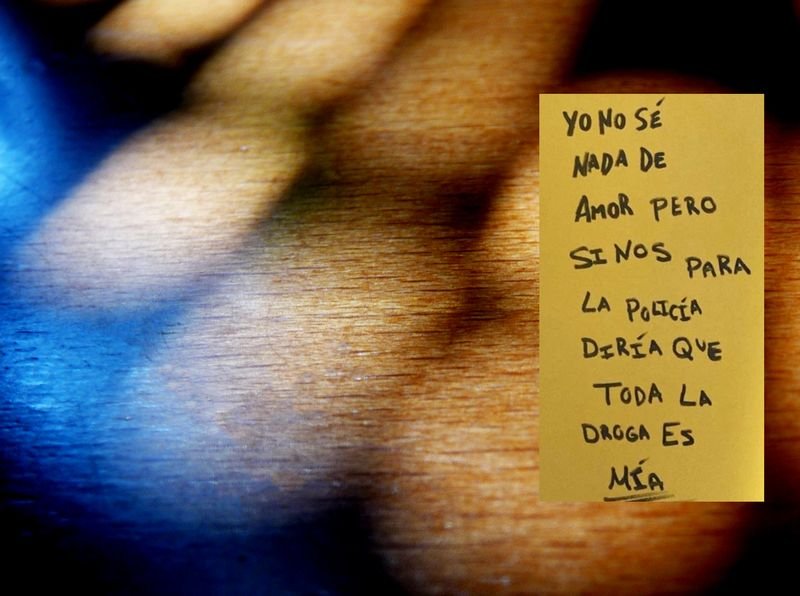 YO NO SÉ
NADA DE
AMOR PERO
SI NOS PARA
LA POLICÍA
DIRÍA QUE
TODA LA
DROGA ES
MÍA